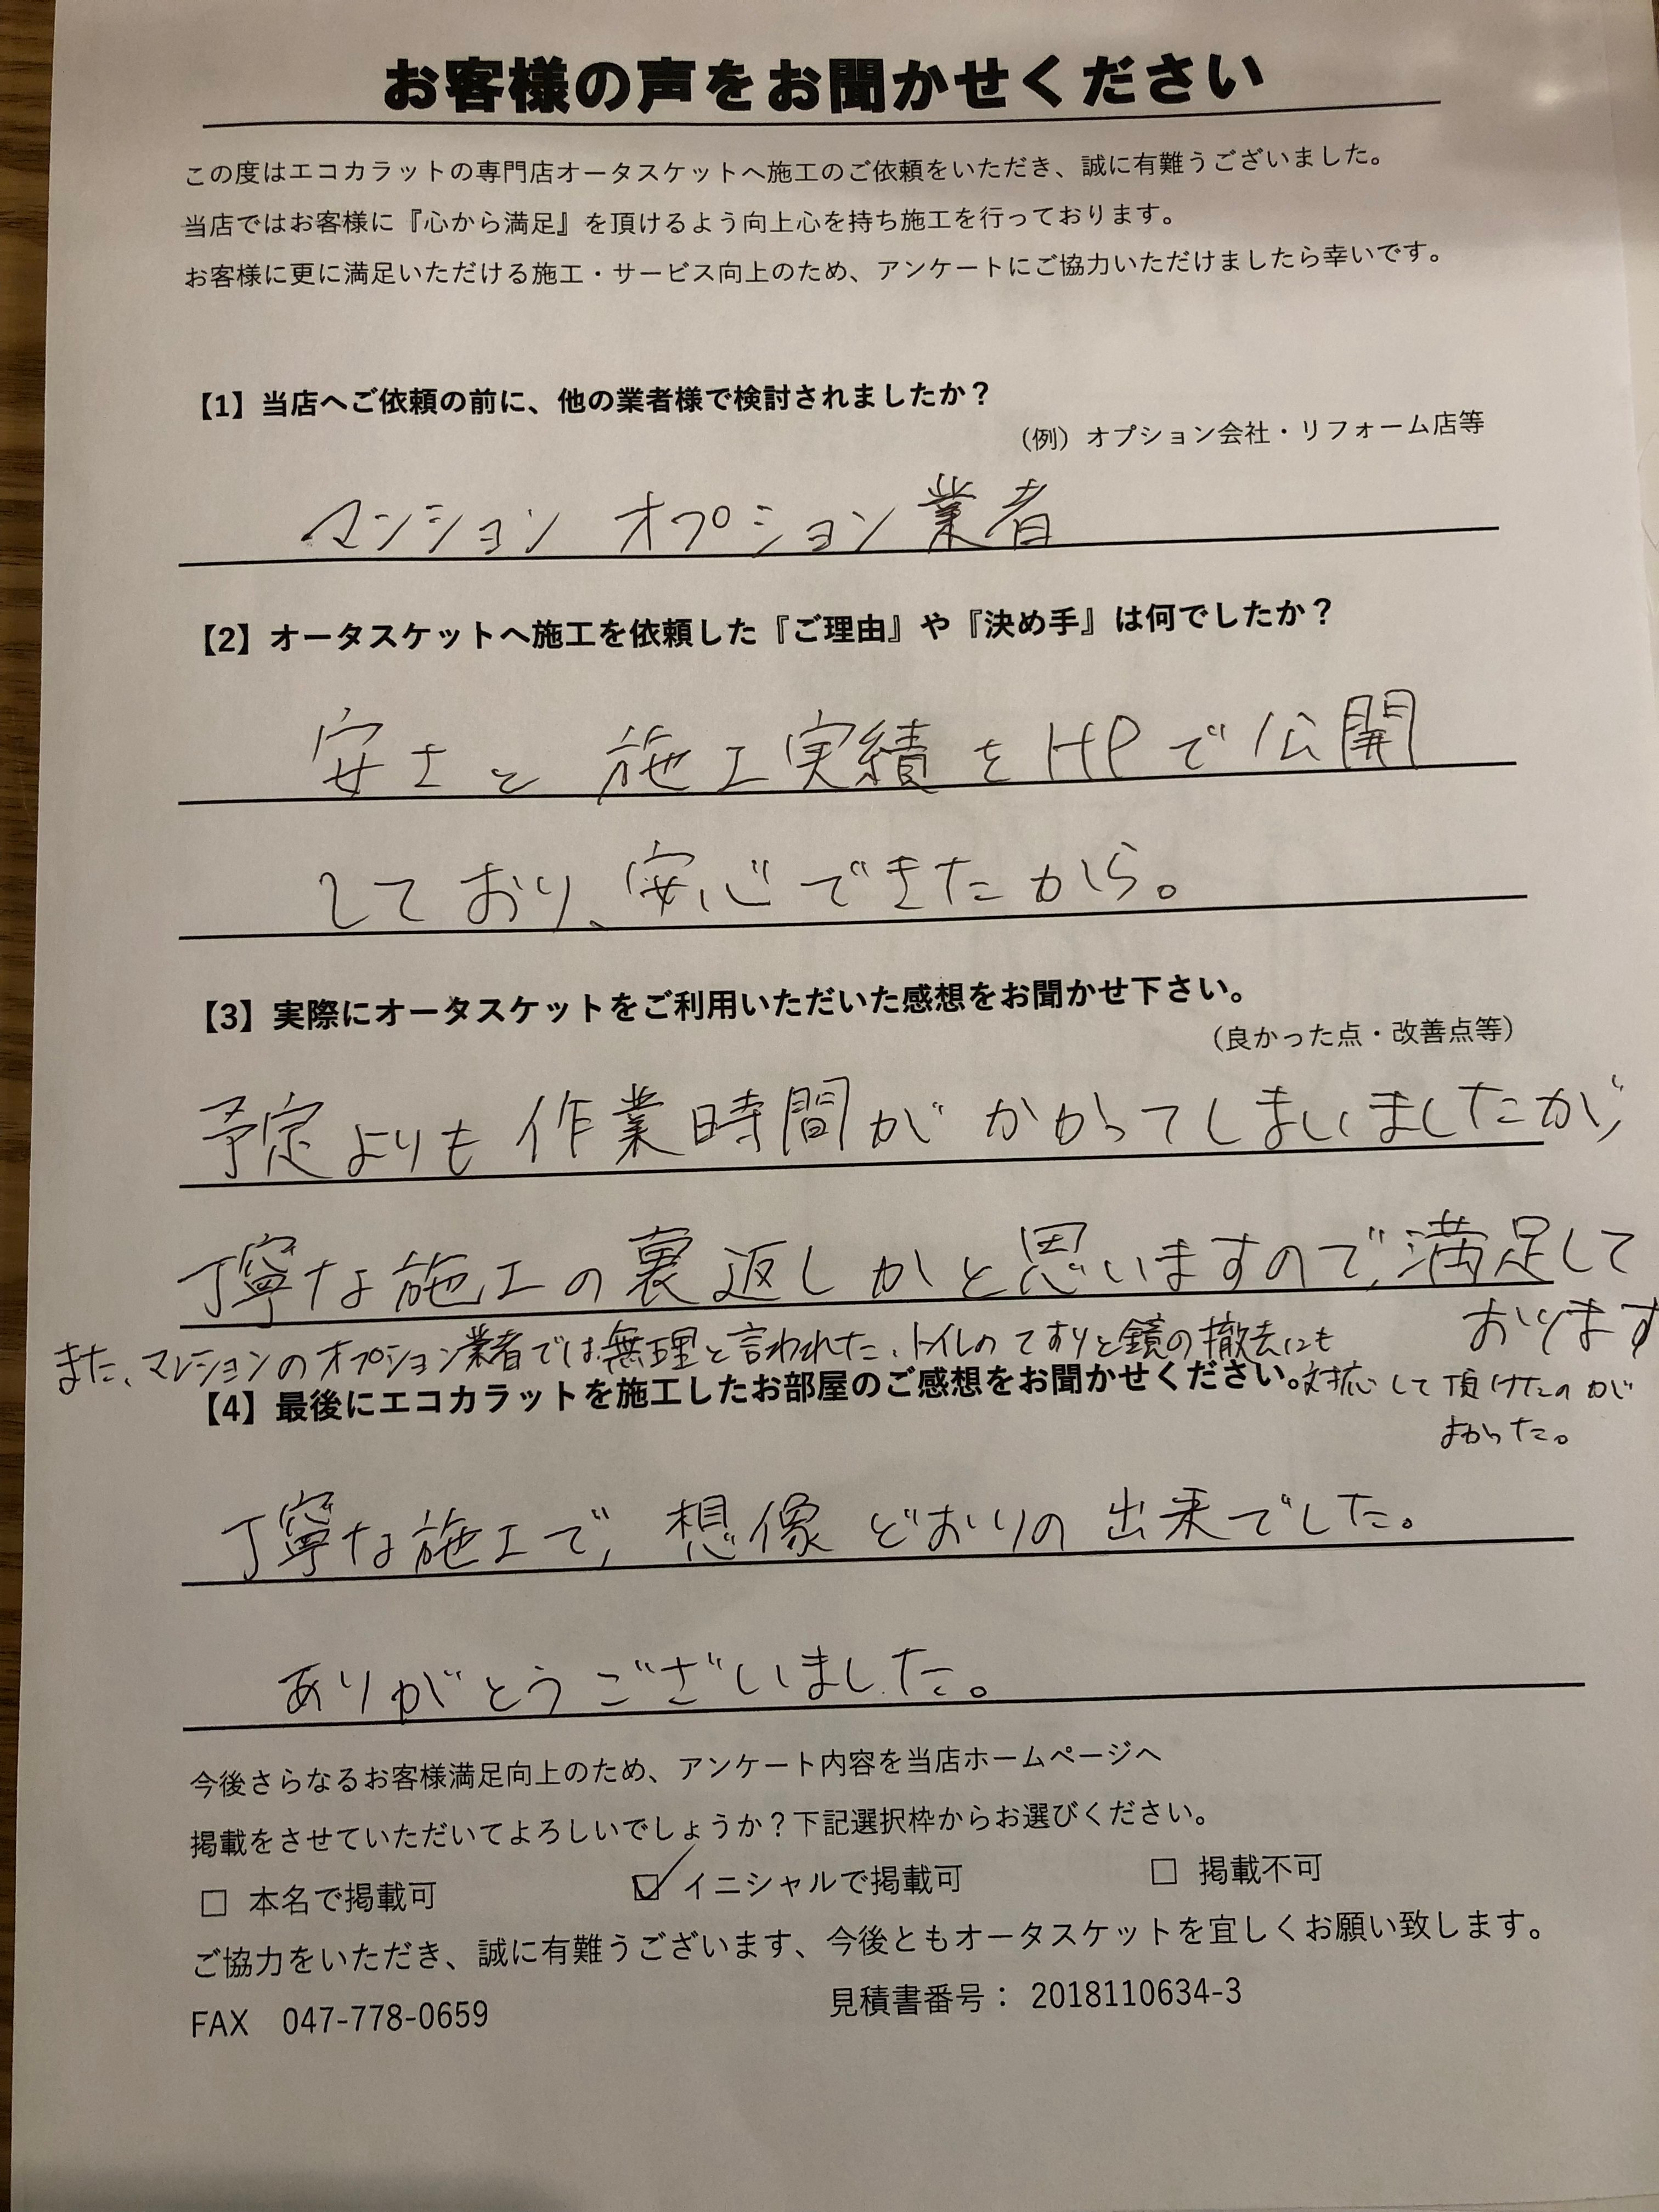 お客様の声をお聞かせください
この度はエコカラットの専門店オータスケットへ施工のご依頼をいただき、誠に有難うございました。
当店ではお客様に『心から満足』を頂けるよう向上心を持ち施工を行っております。
お客様に更に満足いただける施工・サービス向上のため、アンケートにご協力いただけましたら幸いです。
【1】当店へご依頼の前に、他の業者様で検討されましたか？
（例）オプション会社・リフォーム店等
マンション オプション業者
【2】オータスケットへ施工を依頼した『ご理由』や『決め手』は何でしたか？
安さと 施工実績をHPで公開
しており、安心できたから。
【3】実際にオータスケットをご利用いただいた感想をお聞かせ下さい。
（良かった点・改善点等）
予定よりも作業時間がかかってしまいましたが、
丁寧な施工の裏返しかと思いますので、満足して
おります
また、マンションのオプション業者では無理と言われた、トイレのてすりと鏡の撤去にも
対応して頂けたのが
よかった。
【4】最後にエコカラットを施工したお部屋のご感想をお聞かせください。
丁寧な施工で、想像どおりの出来でした。
ありがとうございました。
今後さらなるお客様満足向上のため、アンケート内容を当店ホームページへ
掲載をさせていただいてよろしいでしょうか？下記選択枠からお選びください。
□ 本名で掲載可 ☑ イニシャルで掲載可 □ 掲載不可
ご協力をいただき、誠に有難うございます、今後ともオータスケットを宜しくお願い致します。
FAX 047-778-0659 見積書番号： 2018110634-3